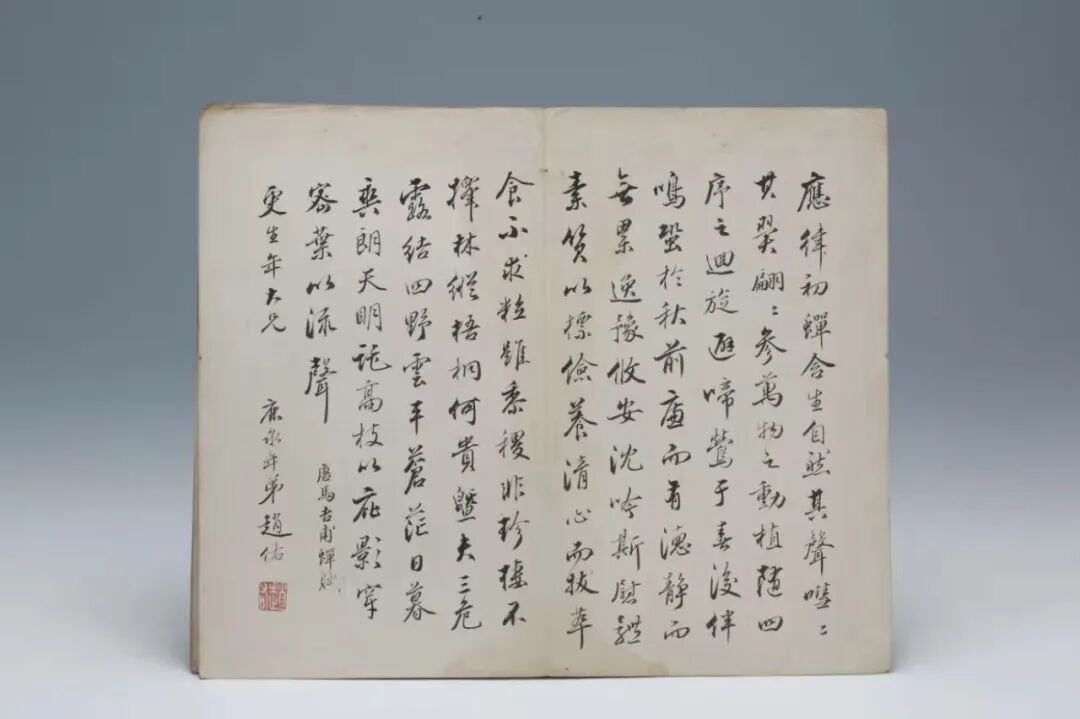 應律初蟬含生自然其聲嘒〻
其翼翩〻參萬物之動植隨四
序之迴旋避啼鶯于春後伴
鳴蛩於秋前廉而有德靜而
無累逸豫攸安沈吟斯慰體
素質以標儉養清心而拔萃
食不求粒雖黍稷非珍棲不
擇林縱梧桐何貴曁夫三危
露結四野雲平蒼茫日暮
爽朗天明託高枝以庇影穿
密葉以流聲
唐馬吉甫蟬賦
更生年大兄
鹿泉年弟趙佑